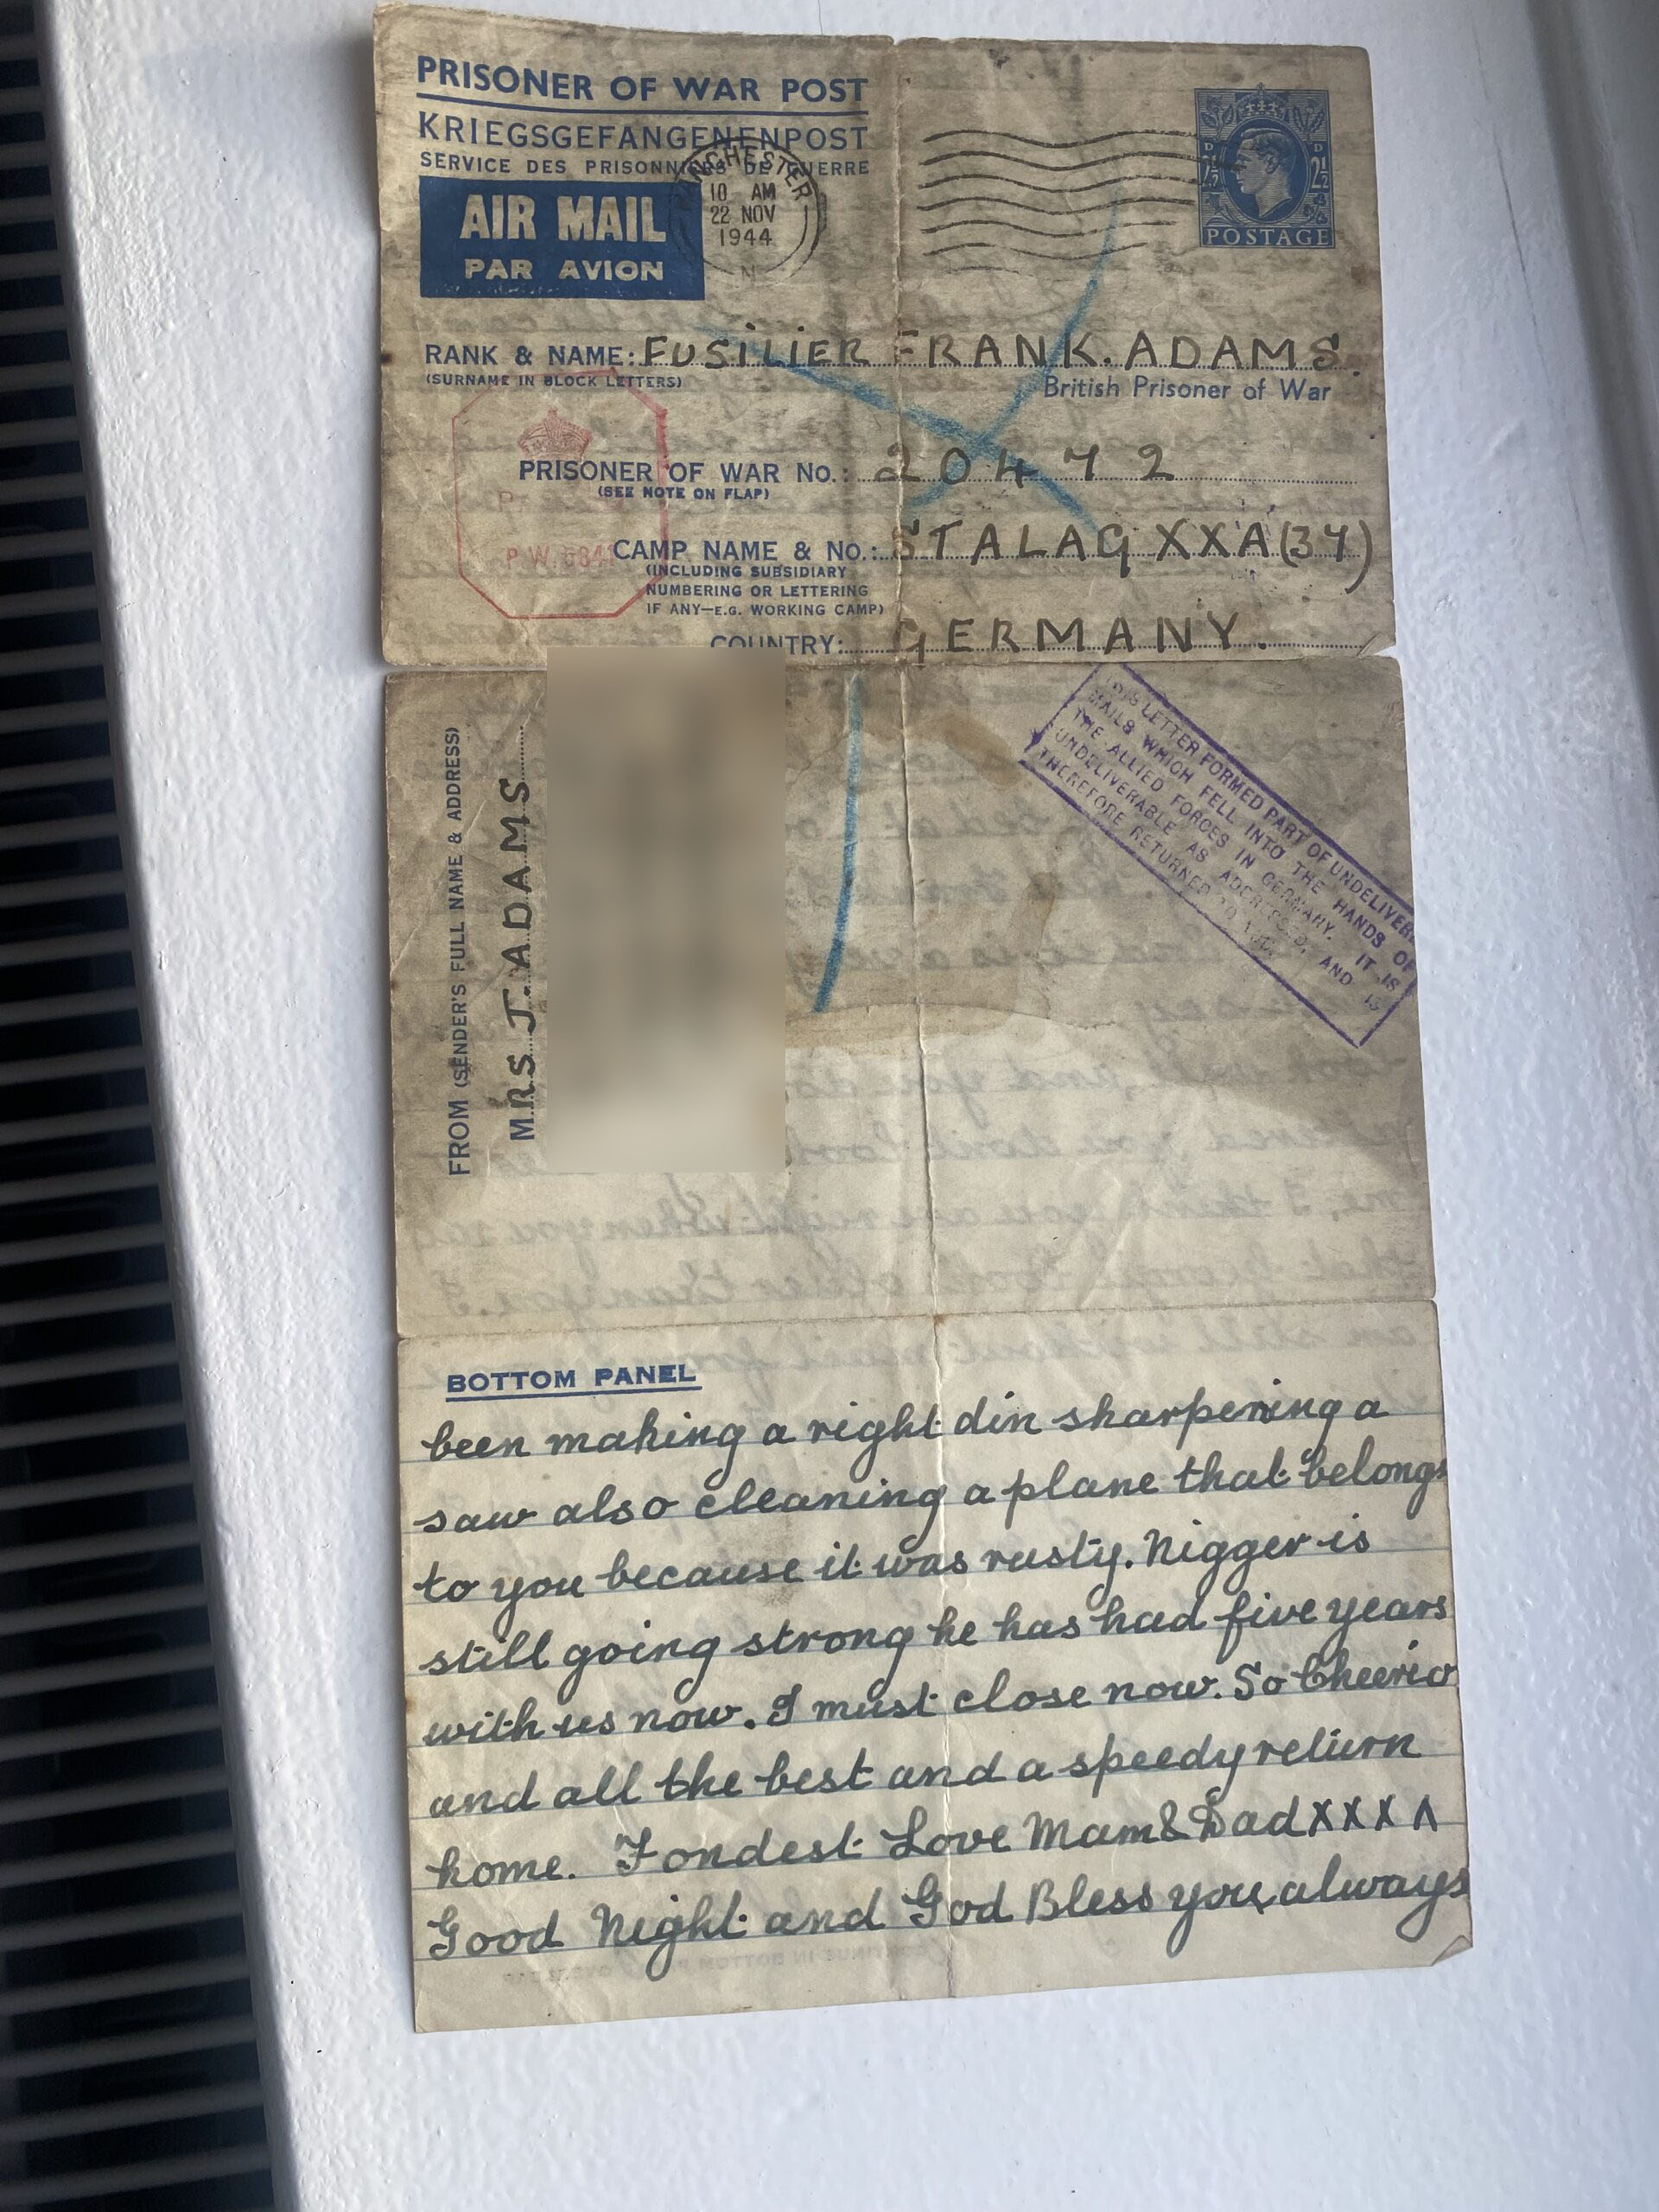 PRISONER OF WAR POST
KRIEGSGEFANGENENPOST
SERVICE DES PRISONNIERS DE GUERRE
AIR MAIL
PAR AVION
MANCHESTER
10 AM
22 NOV
1944
N
D D
2½ 2½
POSTAGE
RANK & NAME: FUSILIER FRANK. ADAMS.
(SURNAME IN BLOCK LETTERS)
British Prisoner of War
PRISONER OF WAR No.: 20472
(SEE NOTE ON FLAP)
P.W.
CAMP NAME & No.: STALAG XXA(34)
(INCLUDING SUBSIDIARY
NUMBERING OR LETTERING
IF ANY—E.G. WORKING CAMP)
COUNTRY: GERMANY.
FROM (SENDER'S FULL NAME & ADDRESS)
MRS J. ADAMS
THIS LETTER FORMED PART OF UNDELIVERE
MAILS WHICH FELL INTO THE HANDS OF
THE ALLIED FORCES IN GERMANY. IT IS
UNDELIVERABLE AS ADDRESSED, AND IS
THEREFORE RETURNED TO
BOTTOM PANEL
been making a right din sharpening a
saw also cleaning a plane that belongs
to you because it was rusty. Nigger is
still going strong he has had five years
with us now. I must close now. So Cheerio
and all the best and a speedy return
home. Fondest Love Mam & Dad XXXX
Good Night and God Bless you always